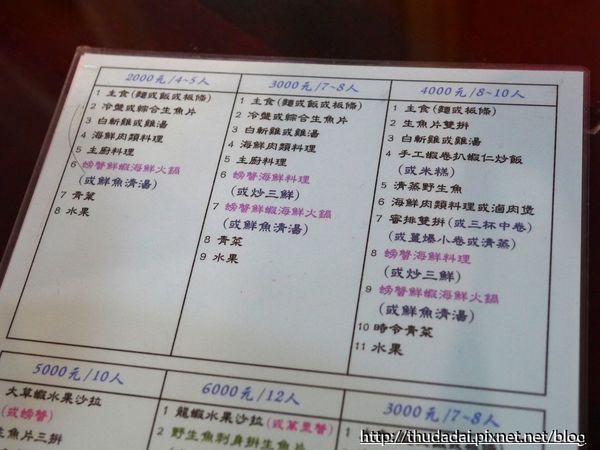 2000元/4~5人
1 主食(麵或飯或板條)
2 冷盤或綜合生魚片
3 白斬雞或雞湯
4 海鮮肉類料理
5 主廚料理
6 螃蟹鮮蝦海鮮火鍋
(或鮮魚清湯)
7 青菜
8 水果
3000元/7~8人
1 主食(麵或飯或板條)
2 冷盤或綜合生魚片
3 白斬雞或雞湯
4 海鮮肉類料理
5 主廚料理
6 螃蟹海鮮料理
(或炒三鮮)
7 螃蟹鮮蝦海鮮火鍋
(或鮮魚清湯)
8 青菜
9 水果
4000元/8~10人
1 主食(麵或飯或板條)
2 生魚片雙拼
3 白斬雞或雞湯
4 手工蝦卷扒蝦仁炒飯
(或米糕)
5 清蒸野生魚
6 海鮮肉類料理或滷肉煲
7 蜜排雙拼(或三杯中卷)
(或薑爆小卷或清蒸)
8 螃蟹海鮮料理
(或炒三鮮)
9 螃蟹鮮蝦海鮮火鍋
(或鮮魚清湯)
10 時令青菜
11 水果
5000元/10人
大草蝦水果沙拉
(或螃蟹)
生魚片三拼
6000元/12人
1 龍蝦水果沙拉(或萬里蟹)
2 野生魚刺身拼生魚片
3000元/7~8人
1
2
http://thudadai.pixnet.net/blog